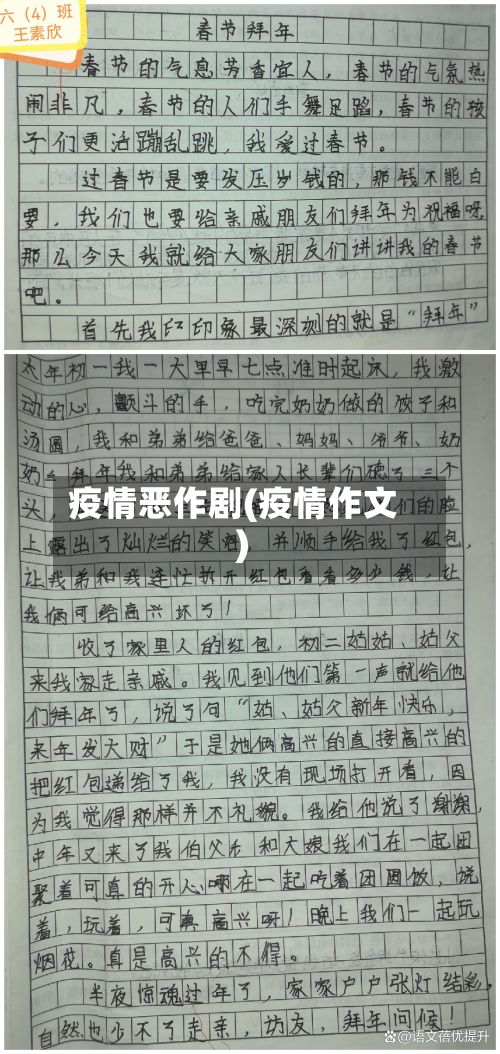 六（4）班
王素欣
春节拜年
春节的气息芳香宜人，春节的气氛热
闹非凡，春节的人们手舞足蹈，春节的孩
子们更活蹦乱跳，我爱过春节。
过春节是要发压岁钱的，那钱不能白
要，我们也要给亲戚朋友们拜年为祝福呀，
那么今天我就给大家朋友们讲讲我的春节
吧。
首先我印印象最深刻的就是“拜年”
大年初一我一大早早七点准时起床，我激
动的心，颤斗的手，吃完奶奶做的饺子和
汤圆，我和弟弟给爸爸、妈妈、爷爷、奶
奶拜年我和弟弟给家人长辈们磕了三个
头，
疫情恶作剧(疫情作文
)
们的脸
上露出了灿烂的笑，并顺手给我了红包，
让我弟和我连忙拆开红包看看多少钱，让
我俩可给高兴坏了！
收了家里人的红包，初二姑姑、姑父
来我家走亲戚。我见到他们第一声就给他
们拜年了，说了句“姑、姑父新年快乐，
来年发大财”于是她俩高兴的直接高兴的
把红包递给了我，我没有现场打开看，因
为我觉得那样并不礼貌。我给他说了谢谢，
中午又来了我伯父 和大娘我们在一起团
聚着可真的开心 在一起吃着团圆饭，说
着，玩着，可真高兴呀！晚上我们一起玩
烟花。真是高兴的不得。
半夜惊魂过年了，家家户户张灯结彩，
自然也少不了走亲，访友，拜年问候！
@语文蓓优提升